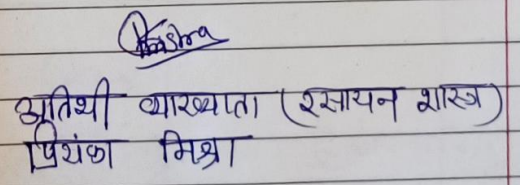 अतिथी व्याख्याता (रसायन शास्त्र)
प्रियंका मिश्रा